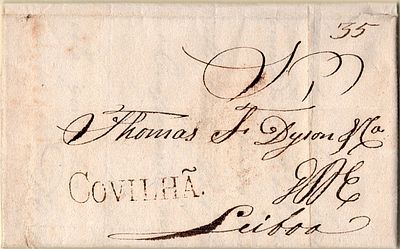 35
Thomas F Dyson & Ca
COVILHÃ.
Lisboa